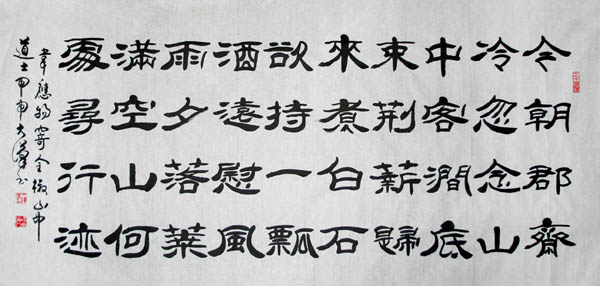 今朝郡齋
冷忽念山
中客澗底
束荆薪歸
來煮白石
欲持一瓢
酒遠慰風
雨夕落葉
滿空山何
處尋行迹
韋應物寄全椒山中
道士甲申大